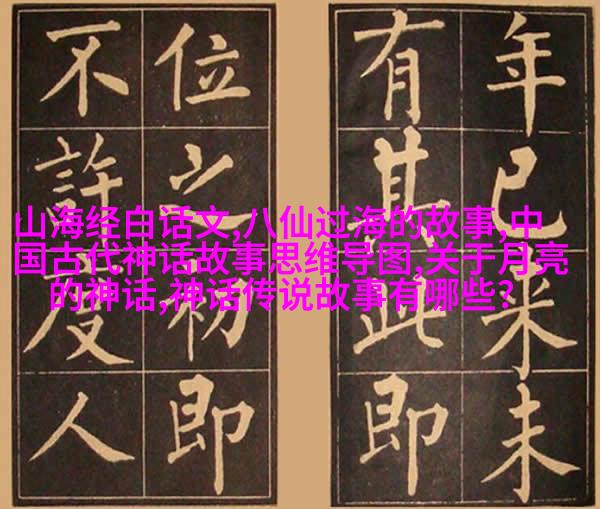 山海经白话文,八仙过海的故事,中
国古代神话故事思维导图,关于月亮
的神话,神话传说故事有哪些?
年已来未
有其此即
位之初即
不許度人